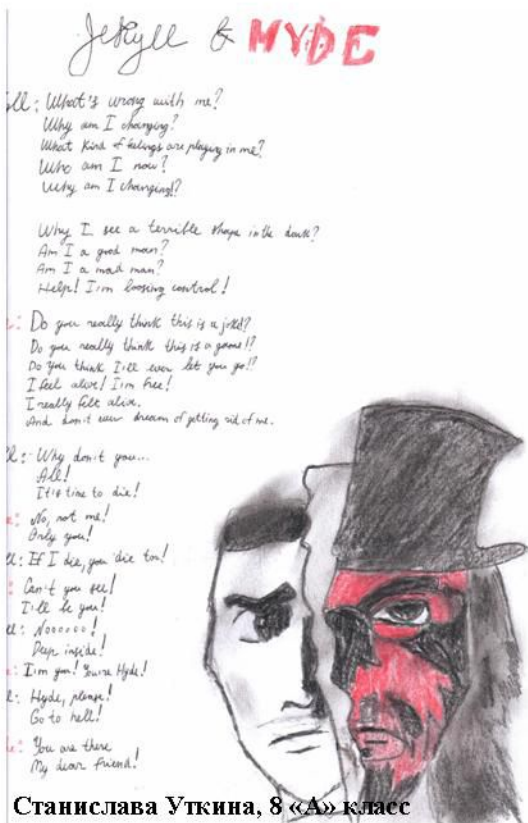 Jekyll & HYDE
ll: What's wrong with me?
Why am I changing?
What kind of feelings are playing in me?
Who am I now?
Why am I changing!?
Why I see a terrible shape in the dark?
Am I a good man?
Am I a mad man?
Help! I'm loosing control!
Do you really think this is a joke!?
Do you really think this is a game!?
Do you think I'll ever let you go!?
I feel alive! I'm free!
I really felt alive.
And don't ever dream of getting rid of me.
ll: Why don't you...
All!
It's time to die!
e: No, not me!
Only you!
ell: If I die, you die too!
Can't you see!
I'll be you!
ell: Noooooo!
Deep inside!
I'm you! You're Hyde!
l: Hyde, please!
Go to hell!
e: You are there
My dear friend!
Станислава Уткина, 8 «А» класс